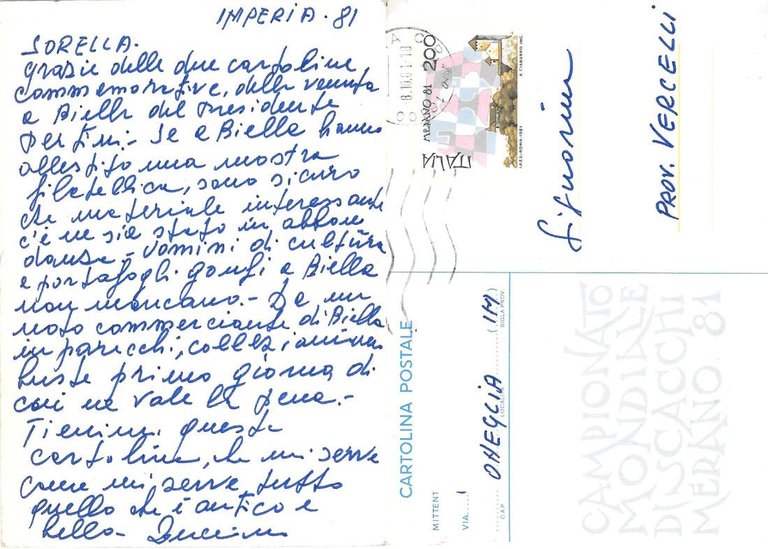 IMPERIA. 81
SORELLA.
grazie delle due cartoline
commemorative, della venuta
a Biella del Presidente
Pertini. Se a Biella hanno
allestito una mostra
filatellica, sono sicuro
che materiale interessante
c'è ne sia stato in abbon
danza. Uomini di cultura
e portafogli gonfi a Biella
non mancano.- Da un
noto commerciante di Biella
in parecchi, collezionano
buste primo giorno di
cui ne vale la pena.-
Tienimi questa
cartolina, che mi serve
come mi serve tutto
quello che è antico e
bello-
8.10.81
ITALIA MERANO 81 200
I.P.Z.S.-ROMA-1981
E. TIABURRO INC.
Signorina
PROV. VERCELLI
CARTOLINA POSTALE
MITTENT
VIA
ONEGLIA (IM)
C.A.P. LOCALITÀ SIGLA PROV.
CAMPIONATO
MONDIALE
DI SCACCHI
MERANO-81